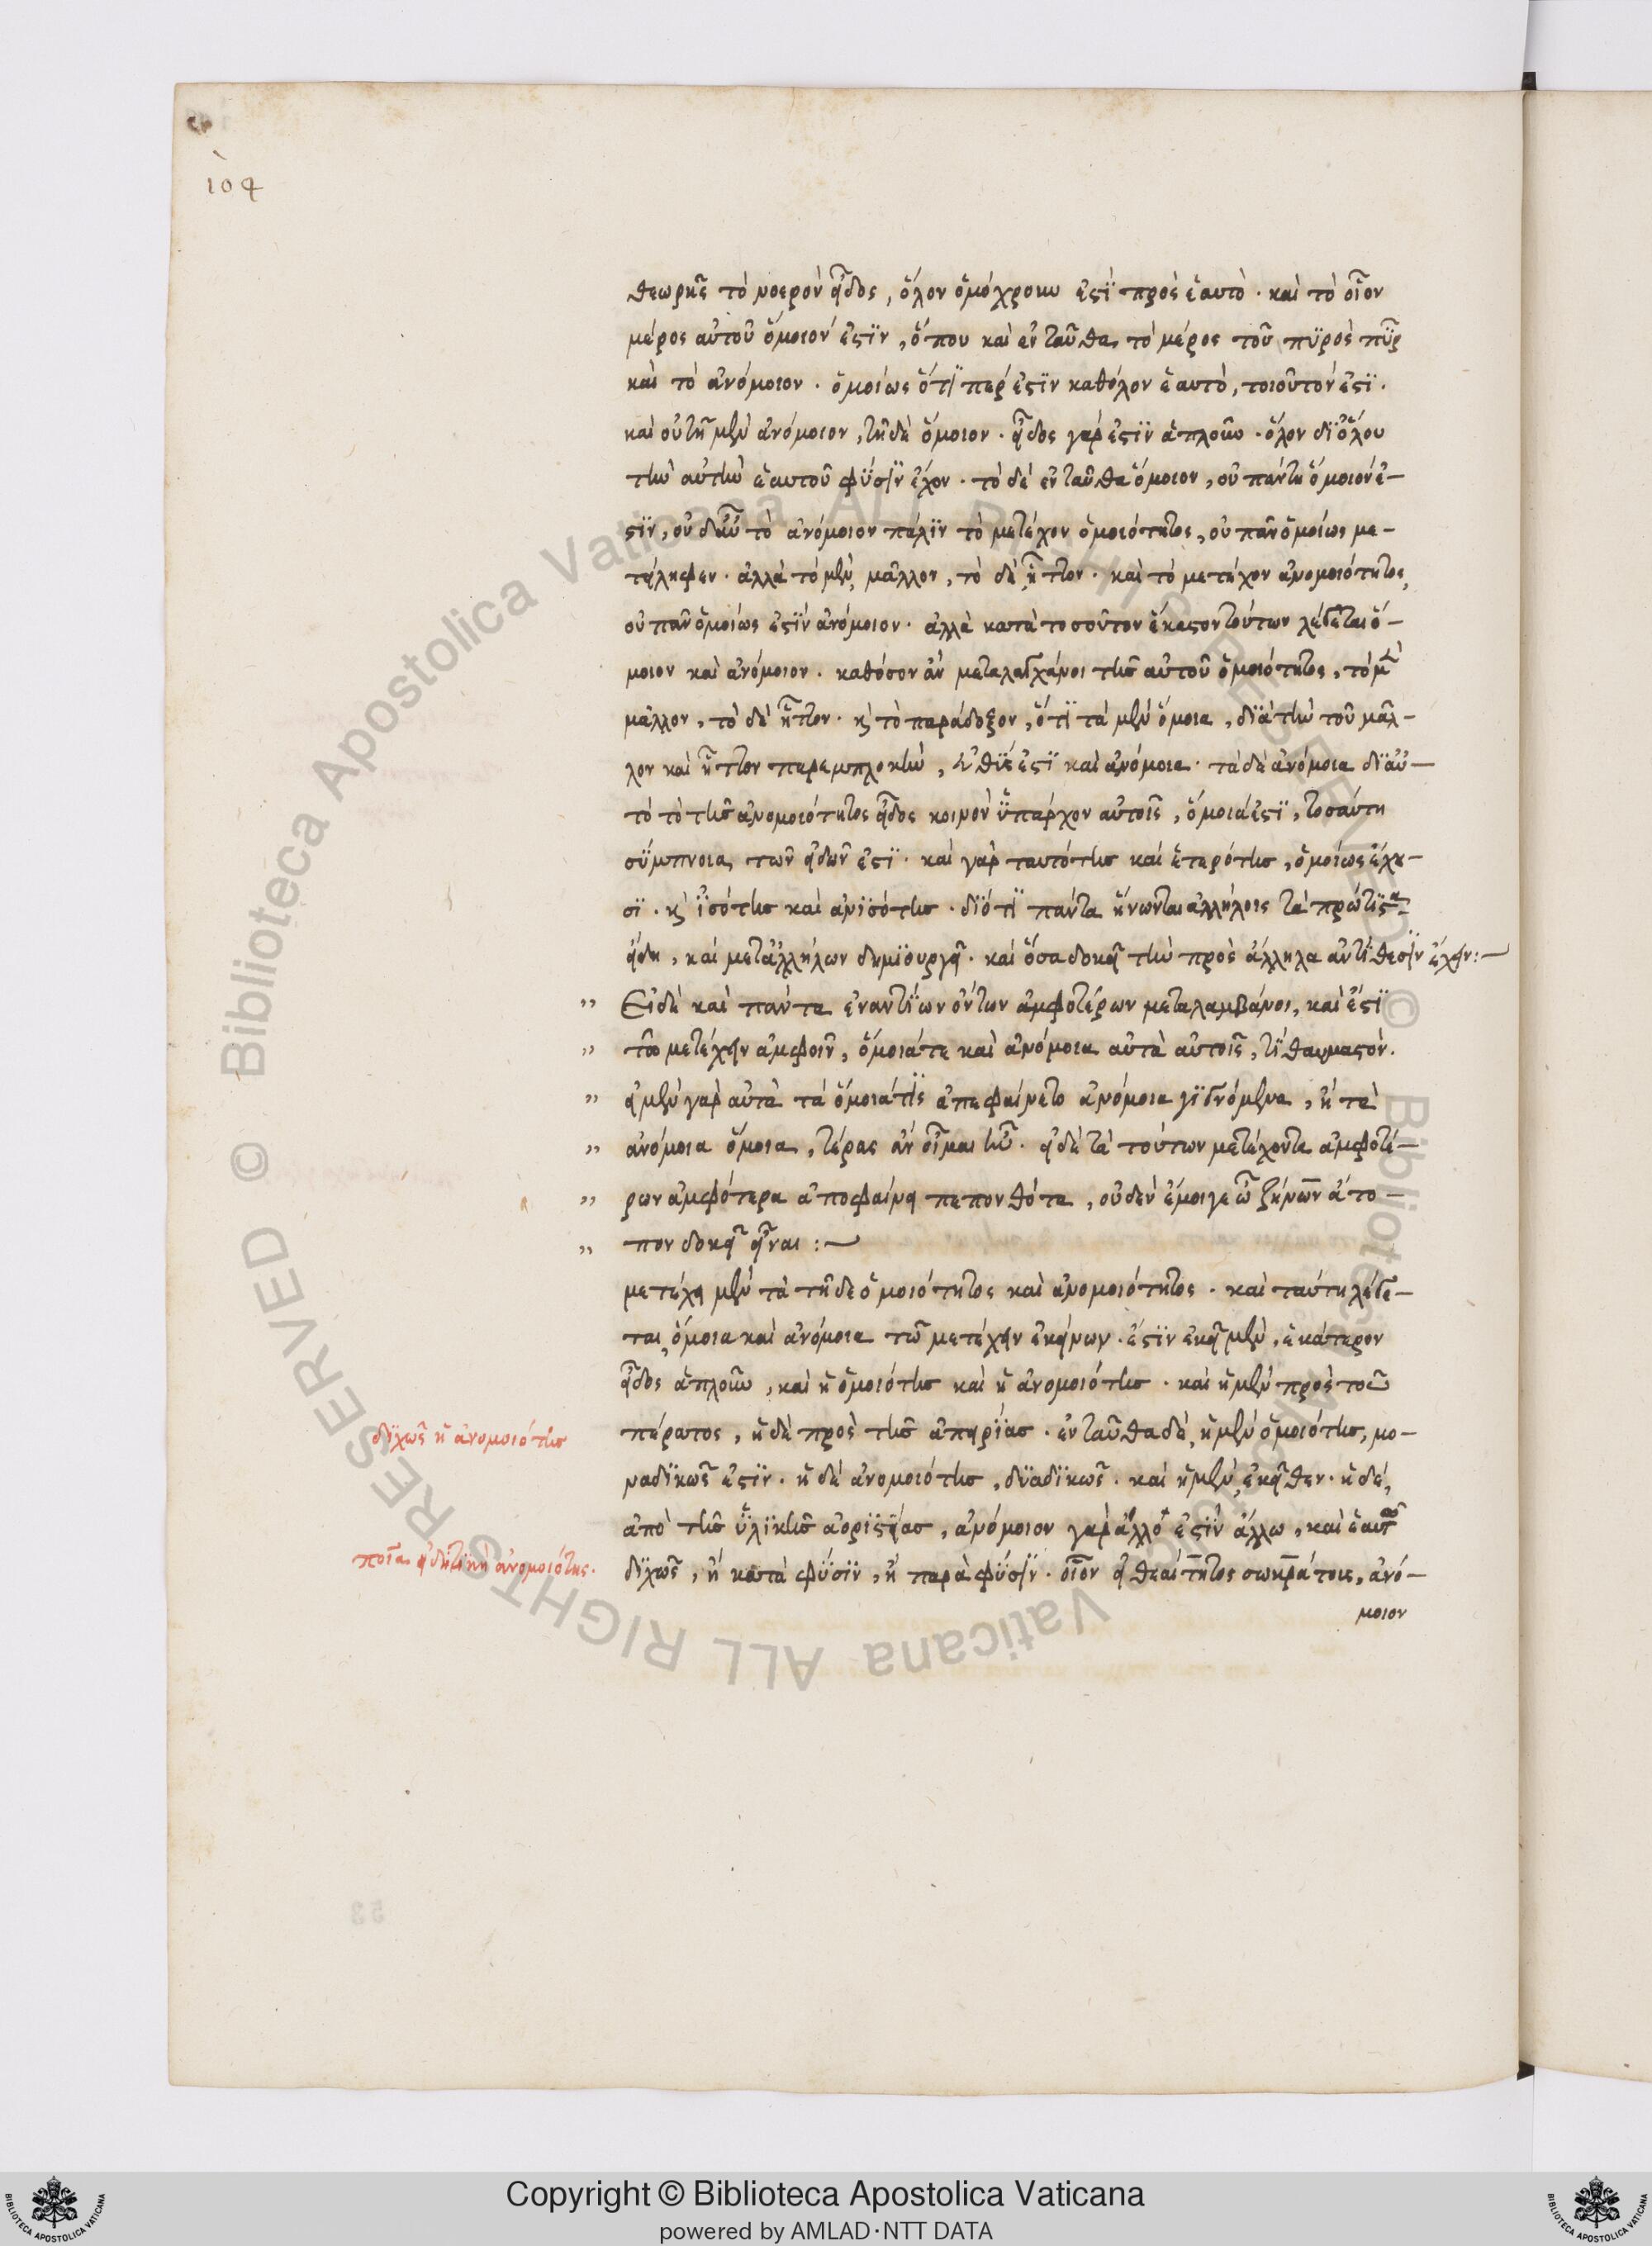 104
θεωρῆς τὸ νοερὸν εἶδος, ὅλον ὁμόχρουν ἐστὶ πρὸς ἑαυτὸ. καὶ τὸ οἷον
μέρος αὐτοῦ ὅμοιον ἐστὶν, ὅπου καὶ ἐνταῦθα τὸ μέρος τοῦ πυρὸς πῦρ
καὶ τὸ ἀνόμοιον. ὁμοίως ὅτι περ ἐστὶν καθόλον ἑαυτὸ, τοιοῦτον ἐστὶ.
καὶ οὐ τῆ μὲν ἀνόμοιον, τῆ δὲ ὅμοιον. εἶδος γάρ ἐστὶν ἁπλοῦν. ὅλον δι' ὅλου
τὴν αὐτὴν ἑαυτοῦ φύσιν ἔχον. τὸ δὲ ἐνταῦθα ὅμοιον, οὐ πάντη ὅμοιον ἐ-
στὶν, οὐδ' αὖ τὸ ἀνόμοιον πάλιν τὸ μετέχον ὁμοιότητος, οὐ πᾶν ὁμοίως με-
τείληφεν. ἀλλὰ τὸ μὲν, μᾶλλον, τὸ δὲ, ἧττον. καὶ τὸ μετέχον ἀνομοιότητος,
οὐ πᾶν ὁμοίως ἐστὶν ἀνόμοιον. ἀλλὰ κατὰ τοσοῦτον ἕκαστον τούτων λέγεται ὅ-
μοιον καὶ ἀνόμοιον. καθόσον ἂν μεταλαγχάνοι τῆς αὐτοῦ ὁμοιότητος, τὸ μὲν
μᾶλλον, τὸ δὲ ἧττον. κὶ τὸ παράδοξον, ὅτι τὰ μὲν ὅμοια, διὰ τὴν τοῦ μᾶλ-
λον καὶ ἧττον παρεμπλοκὴν, εὐθύς ἐστὶ καὶ ἀνόμοια. τὰ δὲ ἀνόμοια δι' αὐ-
τὸ τὸ τῆς ἀνομοιότητος εἶδος κοινὸν ὑπάρχον αὐτοῖς, ὅμοιά ἐστὶ, τοσαύτη
σύμπνοια τῶν εἰδῶν ἐστὶ. καὶ γὰρ ταυτότης καὶ ἑτερότης, ὁμοίως ἔχου-
σι. κὶ ἰσότης καὶ ἀνισότης. διότι πάντα ἥνωνται ἀλλήλοις τὰ πρώτιστα
εἴδη, καὶ μετ' ἀλλήλων δημιουργεῖ. καὶ ὅσα δοκεῖ τὴν πρὸς ἄλληλα ἀντίθεσιν ἔχειν:—
" Εἰ δὲ καὶ πάντα ἐναντίων ὄντων ἀμφοτέρων μεταλαμβάνοι, καὶ ἔστι
" τῶ μετέχειν ἀμφοῖν, ὅμοιά τε καὶ ἀνόμοια αὐτὰ αὑτοῖς, τί θαυμαστόν.
" εἰ μὲν γὰρ αὐτὰ τὰ ὅμοιά τις ἀπεφαίνετο ἀνόμοια γιγνόμενα, ἢ τὰ
" ἀνόμοια ὅμοια, τέρας ἂν οἶμαι ἦν. εἰ δὲ τὰ τούτων μετέχοντα ἀμφοτέ-
" ρων ἀμφότερα ἀποφαίνει πεπονθότα, οὐδὲν ἔμοιγε ὦ ζήνων ἄτο-
" πον δοκεῖ εἶναι:—
μετέχει μὲν τὰ τῆδε ὁμοιότητος καὶ ἀνομοιότητος. καὶ ταύτη λέγε-
ται ὅμοια καὶ ἀνόμοια τῶ μετέχειν ἐκείνων. ἔστιν ἐκεῖ μὲν, ἑκάτερον
εἶδος ἁπλοῦν, καὶ ἡ ὁμοιότης καὶ ἡ ἀνομοιότης. καὶ ἡ μὲν πρὸς τοῦ
διχῶς ἡ ἀνομοιότης
πέρατος, ἡ δὲ πρὸς τῆς ἀπειρίας. ἐνταῦθα δὲ, ἡ μὲν ὁμοιότης, μο-
ναδικῶς ἐστὶν. ἡ δὲ ἀνομοιότης, δυαδικῶς. καὶ ἡ μὲν, ἐκεῖθεν. ἡ δὲ,
ἀπὸ τῆς ὑλικῆς ἀοριστείας, ἀνόμοιον γὰρ ἄλλο ἐστὶν ἄλλω, καὶ ἑαυτῶ
ποία εἰδητικὴ ἀνομοιότης.
διχῶς, ἢ κατὰ φύσιν, ἢ παρὰ φύσιν. οἷον εἰ θεαίτητος σωκράτους, ἀνό-
μοιον
© Biblioteca Apostolica Vaticana ALL RIGHTS RESERVED
Copyright © Biblioteca Apostolica Vaticana
powered by AMLAD·NTT DATA
BIBLIOTECA APOSTOLICA VATICANA
BIBLIOTECA APOSTOLICA VATICANA